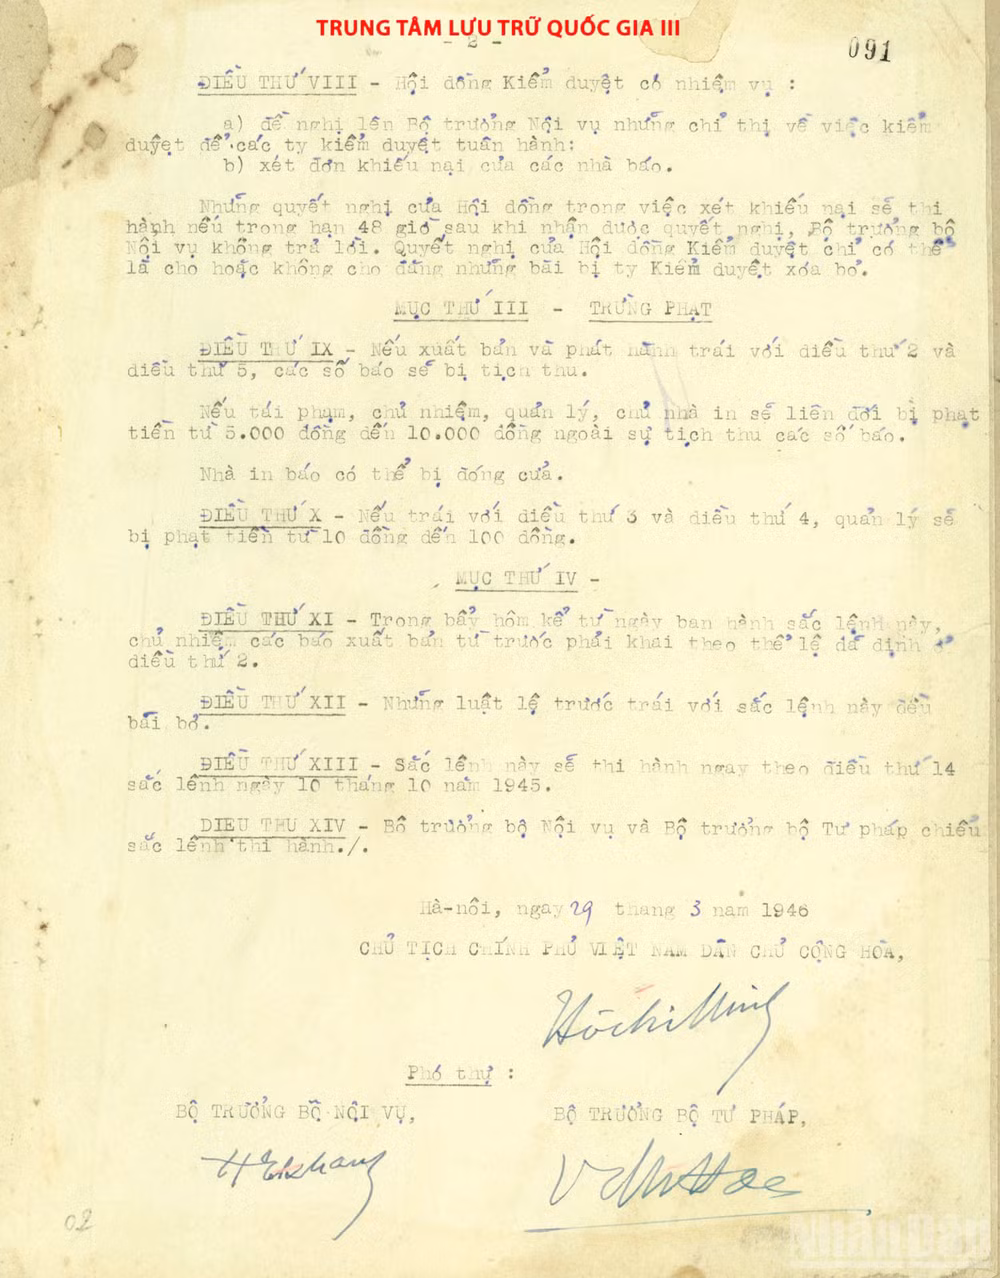 TRUNG TÂM LƯU TRỮ QUỐC GIA III
- 2 -
091
ĐIỀU THỨ VIII - Hội đồng Kiểm duyệt có nhiệm vụ :
a) đề nghị lên Bộ trưởng Nội vụ những chỉ thị về việc kiểm
duyệt để các ty kiểm duyệt tuân hành:
b) xét đơn khiếu nại của các nhà báo.
Những quyết nghị của Hội đồng trong việc xét khiếu nại sẽ thi
hành nếu trong hạn 48 giờ sau khi nhận được quyết nghị, Bộ trưởng bộ
Nội vụ không trả lời. Quyết nghị của Hội đồng Kiểm duyệt chỉ có thể
là cho hoặc không cho đăng những bài bị ty Kiểm duyệt xóa bỏ.
MỤC THỨ III - TRỪNG PHẠT
ĐIỀU THỨ IX - Nếu xuất bản và phát hành trái với điều thứ 2 và
điều thứ 5, các số báo sẽ bị tịch thu.
Nếu tái phạm, chủ nhiệm, quản lý, chủ nhà in sẽ liên đới bị phạt
tiền từ 5.000 đồng đến 10.000 đồng ngoài sự tịch thu các số báo.
Nhà in báo có thể bị đóng cửa.
ĐIỀU THỨ X - Nếu trái với điều thứ 3 và điều thứ 4, quản lý sẽ
bị phạt tiền từ 10 đồng đến 100 đồng.
MỤC THỨ IV -
ĐIỀU THỨ XI - Trong bẩy hôm kể từ ngày ban hành sắc lệnh này,
chủ nhiệm các báo xuất bản từ trước phải khai theo thể lệ đã định ở
điều thứ 2.
ĐIỀU THỨ XII - Những luật lệ trước trái với sắc lệnh này đều
bãi bỏ.
ĐIỀU THỨ XIII - Sắc lệnh này sẽ thi hành ngay theo điều thứ 14
sắc lệnh ngày 10 tháng 10 năm 1945.
DIEU THU XIV - Bộ trưởng bộ Nội vụ và Bộ trưởng bộ Tư pháp chiểu
sắc lệnh thi hành./.
Hà-nội, ngày 29 tháng 3 năm 1946
CHỦ TỊCH CHÍNH PHỦ VIỆT NAM DÂN CHỦ CỘNG HÒA,
Hồ Chí Minh
Phó thự :
BỘ TRƯỞNG BỘ NỘI VỤ,
BỘ TRƯỞNG BỘ TƯ PHÁP,
02
Nhân Dân